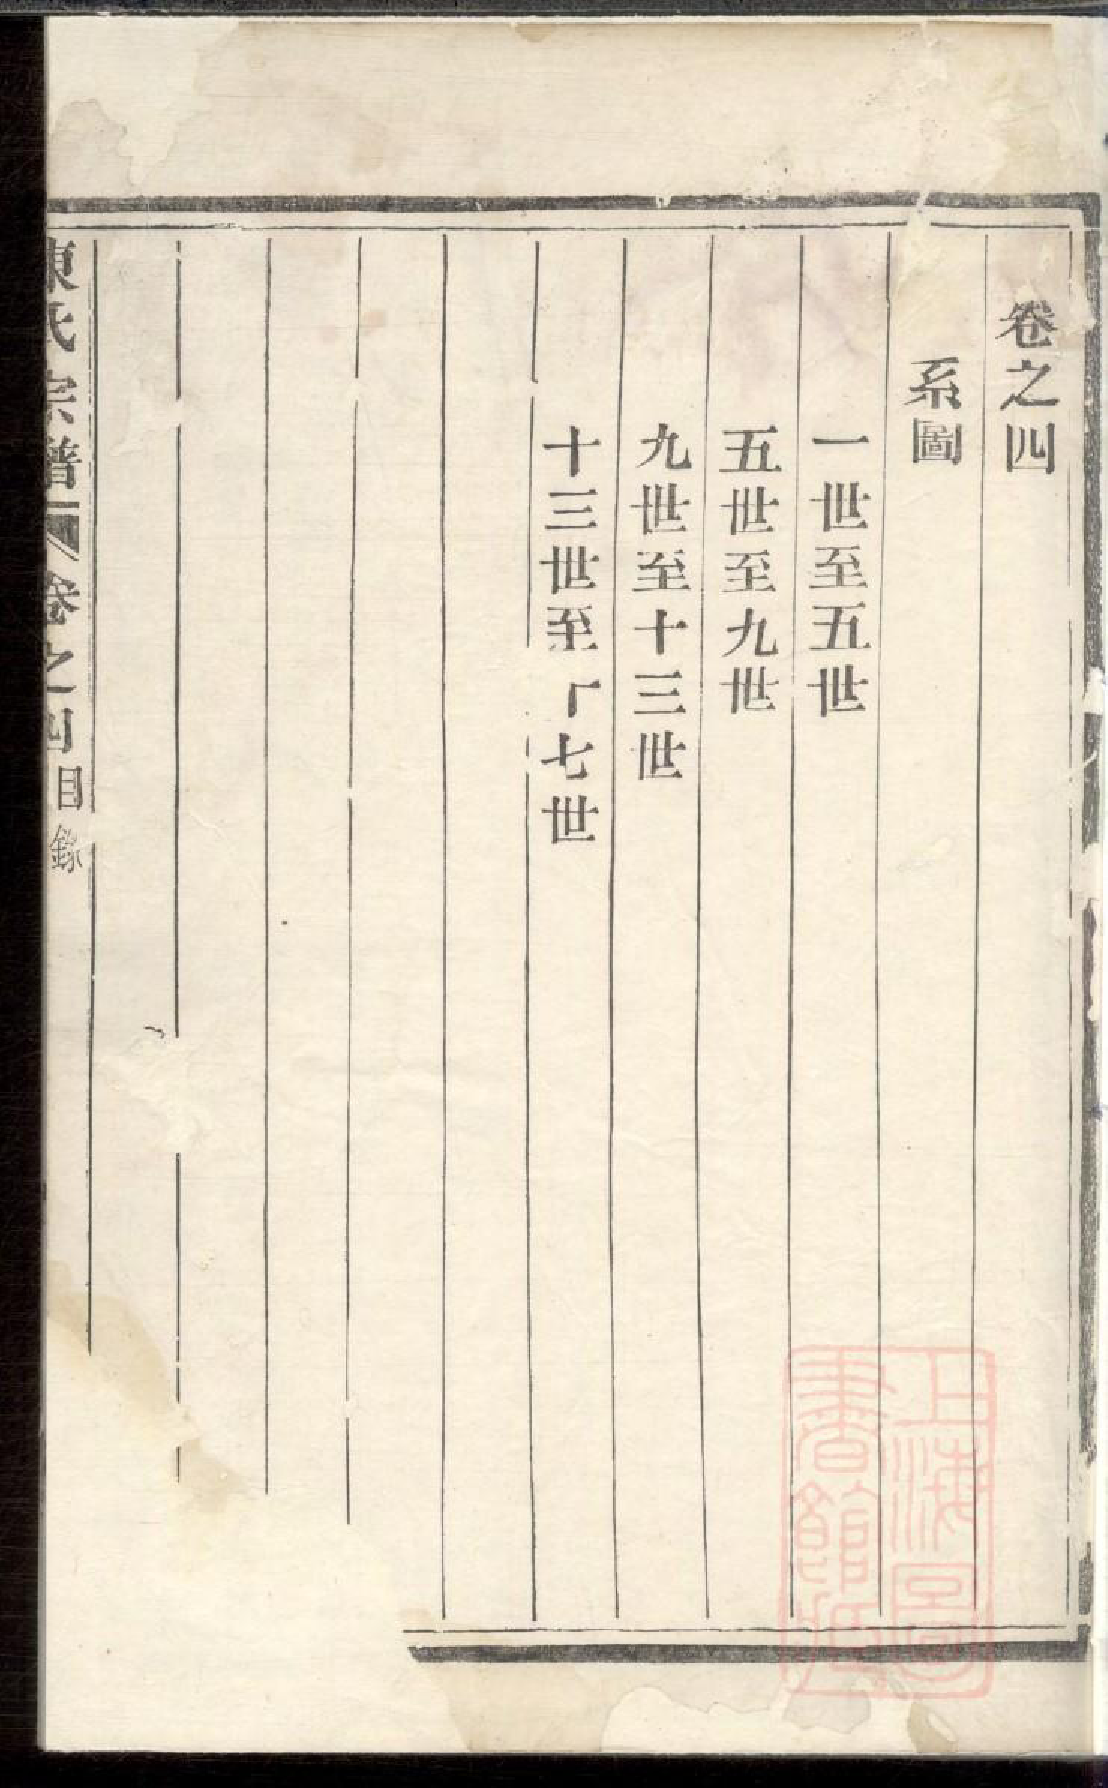 卷之四
系圖
一世至五世
五世至九世
九世至十三世
十三世至十七世
陳氏宗譜 卷之四 目錄
上海圖
書館藏